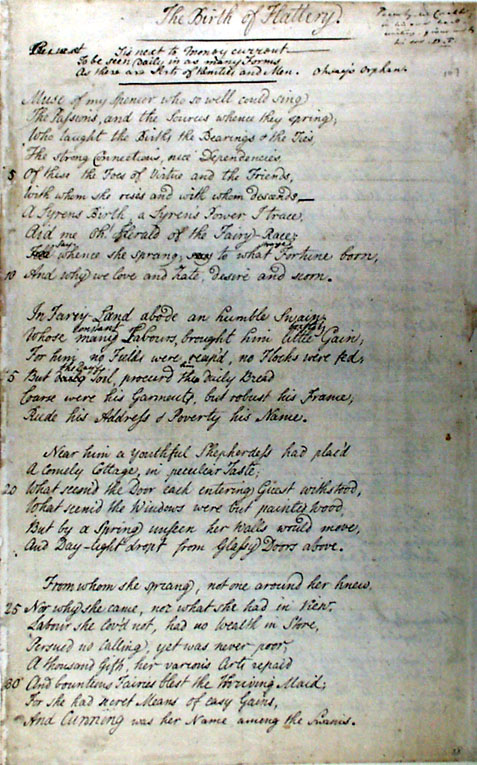 The Birth of Flattery.
in his own
his son
The est Tis next to Money currant
To be seen daily in as many Forms
As there are Sorts of Vanities and Men. Otway's Orphan.
Muse of my Spencer who so well could sing
The Passions, and the Sources whence they spring;
Who taught the Birth, the Bearings & the Ties,
The strong Connections, nice Dependencies
5 Of these the Foes of Virtue and the Friends,
With whom she rises and with whom descends,
A Syrens Birth, a Syrens Power I trace,
Aid me Oh! Herald of the Fairy-Race;
Say proper
whence she sprang, to what Fortune born,
10 And why we love and hate, desire and scorn.
In Fairy-Land abode an humble Swain;
constant
Whose many Labours, brought him little Gain;
For him no Fields were reap'd, no Flocks were fed;
his
But Toil, procur'd daily Bread
Coarse were his Garments, but robust his Frame,
Rude his Address & Poverty his Name.
Near him a Youthful Shepherdess had plac'd
A Comely Cottage, in peculiar Taste;
20 What seem'd the Door each entering Guest withstood,
What seem'd the Windows were but painted Wood,
But by a Spring unseen her Walls would move,
And Day-light dropt from Glassy Doors above.
From whom she sprang, not one around her knew,
25 Nor why she came, nor what she had in View.
Labour she lov'd not, had no Wealth in Store,
Persued no Calling, yet was never poor;
A thousand Gifts her various Arts repaid
30 And bounteous Fairies blest the Thriving Maid;
For she had secret Means of easy Gains,
And Cunning was her Name among the Swains.